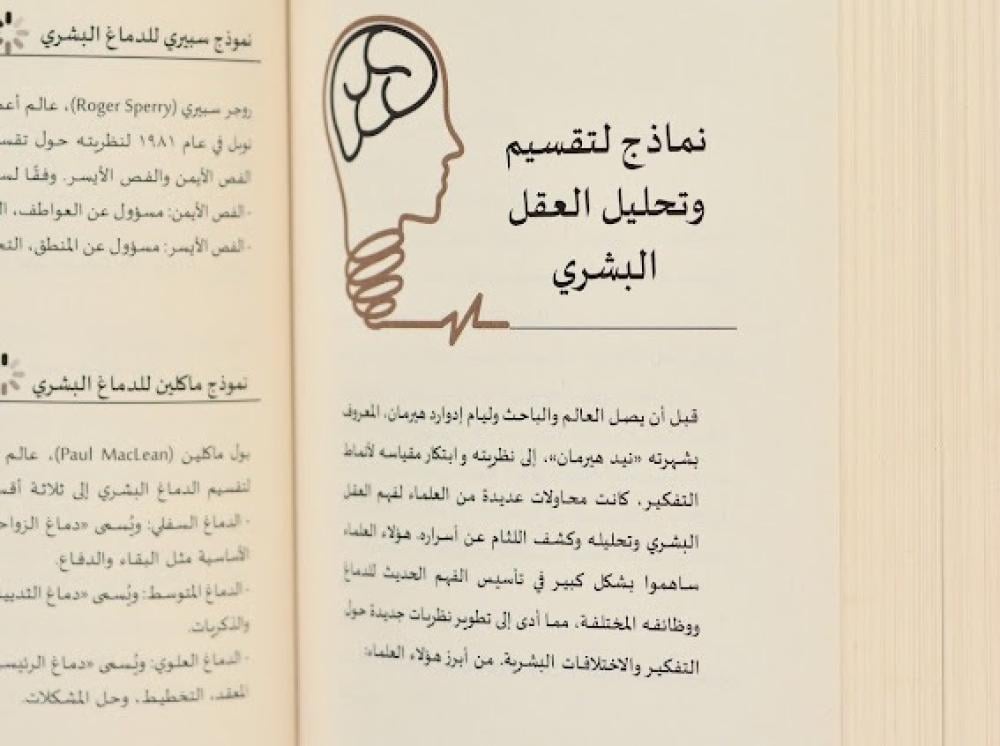 نماذج لتقسيم
وتحليل العقل
البشري
قبل أن يصل العالم والباحث وليام إدوارد هيرمان، المعروف
بشهرته «نيد هيرمان»، إلى نظريته وابتكار مقياسه لأنماط
التفكير، كانت محاولات عديدة من العلماء لفهم العقل
البشري وتحليله وكشف اللثام عن أسراره. هؤلاء العلماء
ساهموا بشكل كبير في تأسيس الفهم الحديث للدماغ
ووظائفه المختلفة، مما أدى إلى تطوير نظريات جديدة حول
التفكير والاختلافات البشرية. من أبرز هؤلاء العلماء:
نموذج سبيري للدماغ البشري
روجر سبيري (Roger Sperry)، عالم
نوبل في عام ١٩٨١ لنظريته حول
الفص الأيمن والفص الأيسر. وفقًا
- الفص الأيمن: مسؤول عن العواطف،
- الفص الأيسر: مسؤول عن المنطق،
نموذج ماكلين للدماغ البشري
بول ماكلين (Paul MacLean)، عالم
لتقسيم الدماغ البشري إلى ثلاثة
- الدماغ السفلي: ويُسمى «دماغ
الأساسية مثل البقاء والدفاع.
- الدماغ المتوسط: ويُسمى «دماغ
والذكريات.
- الدماغ العلوي: ويُسمى «دماغ
المعقد، التخطيط، وحل المشكلات.